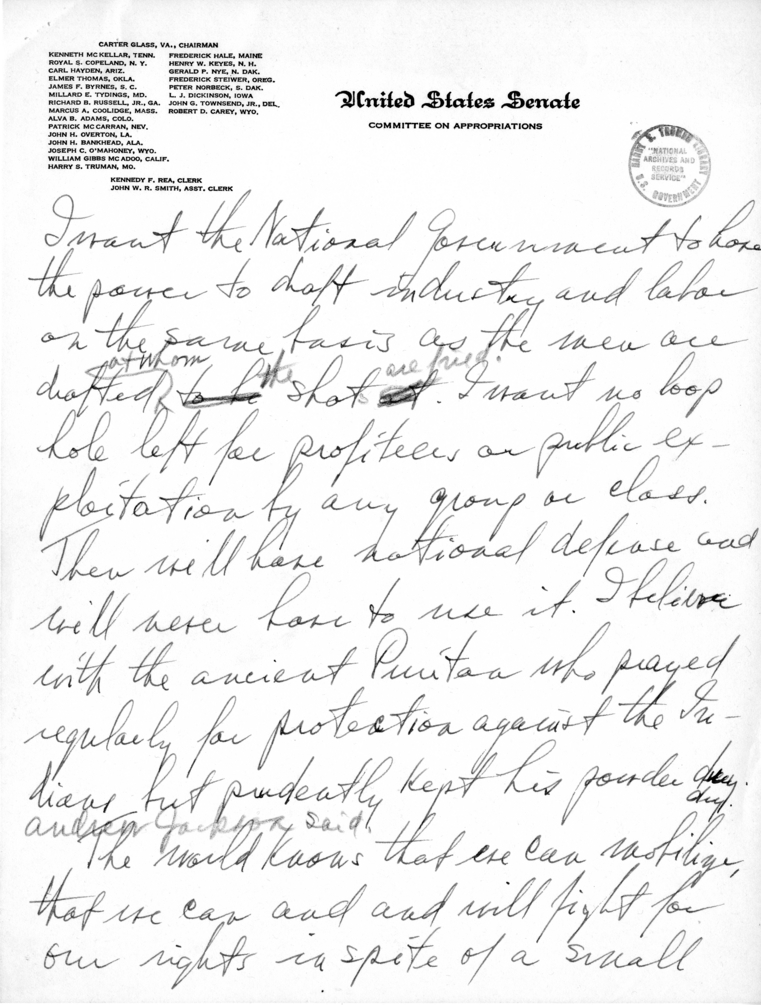 CARTER GLASS, VA., CHAIRMAN
KENNETH MCKELLAR, TENN.
ROYAL S. COPELAND, N. Y.
CARL HAYDEN, ARIZ.
ELMER THOMAS, OKLA.
JAMES F. BYRNES, S. C.
MILLARD E. TYDINGS, MD.
RICHARD B. RUSSELL, JR., GA.
MARCUS A. COOLIDGE, MASS.
ALVA B. ADAMS, COLO.
PATRICK MCCARRAN, NEV.
JOHN H. OVERTON, LA.
JOHN H. BANKHEAD, ALA.
JOSEPH C. O'MAHONEY, WYO.
WILLIAM GIBBS MCADOO, CALIF.
HARRY S. TRUMAN, MO.
FREDERICK HALE, MAINE
HENRY W. KEYES, N. H.
GERALD P. NYE, N. DAK.
FREDERICK STEIWER, OREG.
PETER NORBECK, S. DAK.
L. J. DICKINSON, IOWA
JOHN G. TOWNSEND, JR., DEL.
ROBERT D. CAREY, WYO.
KENNEDY F. REA, CLERK
JOHN W. R. SMITH, ASST. CLERK
United States Senate
COMMITTEE ON APPROPRIATIONS
HARRY S. TRUMAN LIBRARY
"NATIONAL
ARCHIVES AND
RECORDS
SERVICE"
U.S. GOVERNMENT
I want the National Government to have
the power to draft industry and labor
on the same basis as the men are
at whom the are fired.
drafted, to be shot at. I want no loop
hole left for profiteers or public ex-
ploitation by any group or class.
Then we'll have national defense and
will never have to use it. I believe
with the ancient Puritan who prayed
regularly for protection against the In-
dians but prudently kept his powder dry.
dry.
Andrew Jackson said.
The world knows that we can mobilize,
that we can and and will fight for
our rights in spite of a small